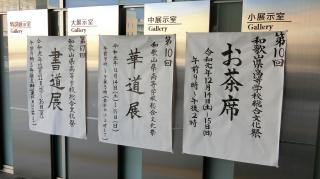 小展示室
Gallery
第10回
和歌山県高等学校総合文化祭
お茶席
令和元年12月14日(土)~15日(日)
午前10時~午後2時
中展示室
Gallery
第10回
和歌山県高等学校総合文化祭
華道展
大展示室
Gallery
和歌山県高等学校総合文化祭
書道展
Gallery